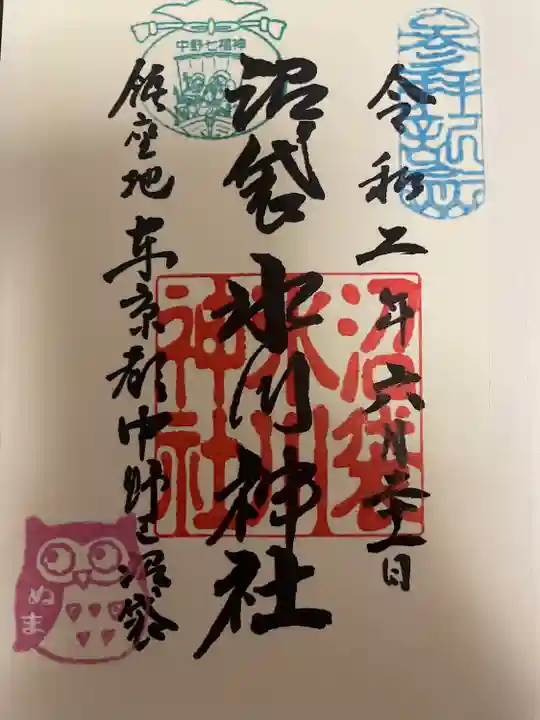 令和二年六月 日
沼袋氷川神社
鎮座地 東京都中野区沼袋
中野七福神
沼袋
氷川
神社
ぬま